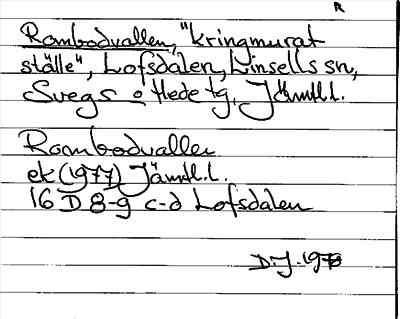 R
Rombodvallen, "kringmurat
ställe", Lofsdalen, Linsells sn,
Svegs o Hede tg, Jämtl.l.
Rombodvallen
ek (1977) Jämtl.l.
16 D 8-g c-d Lofsdalen
D.J. 1978